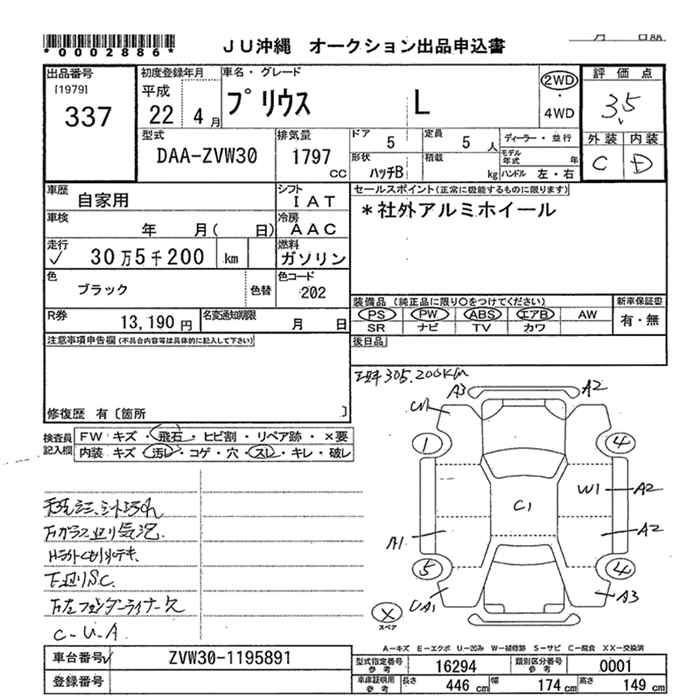 *0002886*
JU沖縄 オークション出品申込書
出品番号
[1979]
337
初度登録年月
平成
22 4 月
車名・グレード
プリウス L
2WD
・
4WD
評価点
3.5
外装 内装
C D
型式
DAA-ZVW30
排気量
1797
CC
ドア 5
定員 5 人
形状 ハッチB
積載 kg
ディーラー・並行
モデル年式 年
ハンドル 左・右
車歴
自家用
シフト
IAT
車検
年 月( 日)
冷房
AAC
走行
✓ 30万5千200 km
燃料
ガソリン
色
ブラック
色替
色コード
202
R券
13,190円
名変通知期限
月 日
セールスポイント(正常に機能するものに限ります)
*社外アルミホイール
装備品 (純正品に限り○をつけてください)
PS PW ABS エアB AW
SR ナビ TV カワ
新車保証書
有・無
後日品
注意事項申告欄(不具合内容等は具体的に記入して下さい)
修復歴 有〔箇所 〕
305,200KM
検査員
記入欄
FW キズ・飛石・ヒビ割・リペア跡・×要
内装 キズ・汚レ・コゲ・穴・スレ・キレ・破レ
下廻りS.C.
C-U.A
A3
A2
1
4
C1
W1
A2
A1
A2
5
4
UA1
A3
X
スペア
A-キズ E-エクボ U-凹み W-補修跡 S-サビ C-腐食 XX-交換済
車台番号✓
ZVW30-1195891
登録番号
型式指定番号
参考
16294
類別区分番号
参考
0001
車庫証明用
参考
長さ 446 cm
幅 174 cm
高さ 149 cm